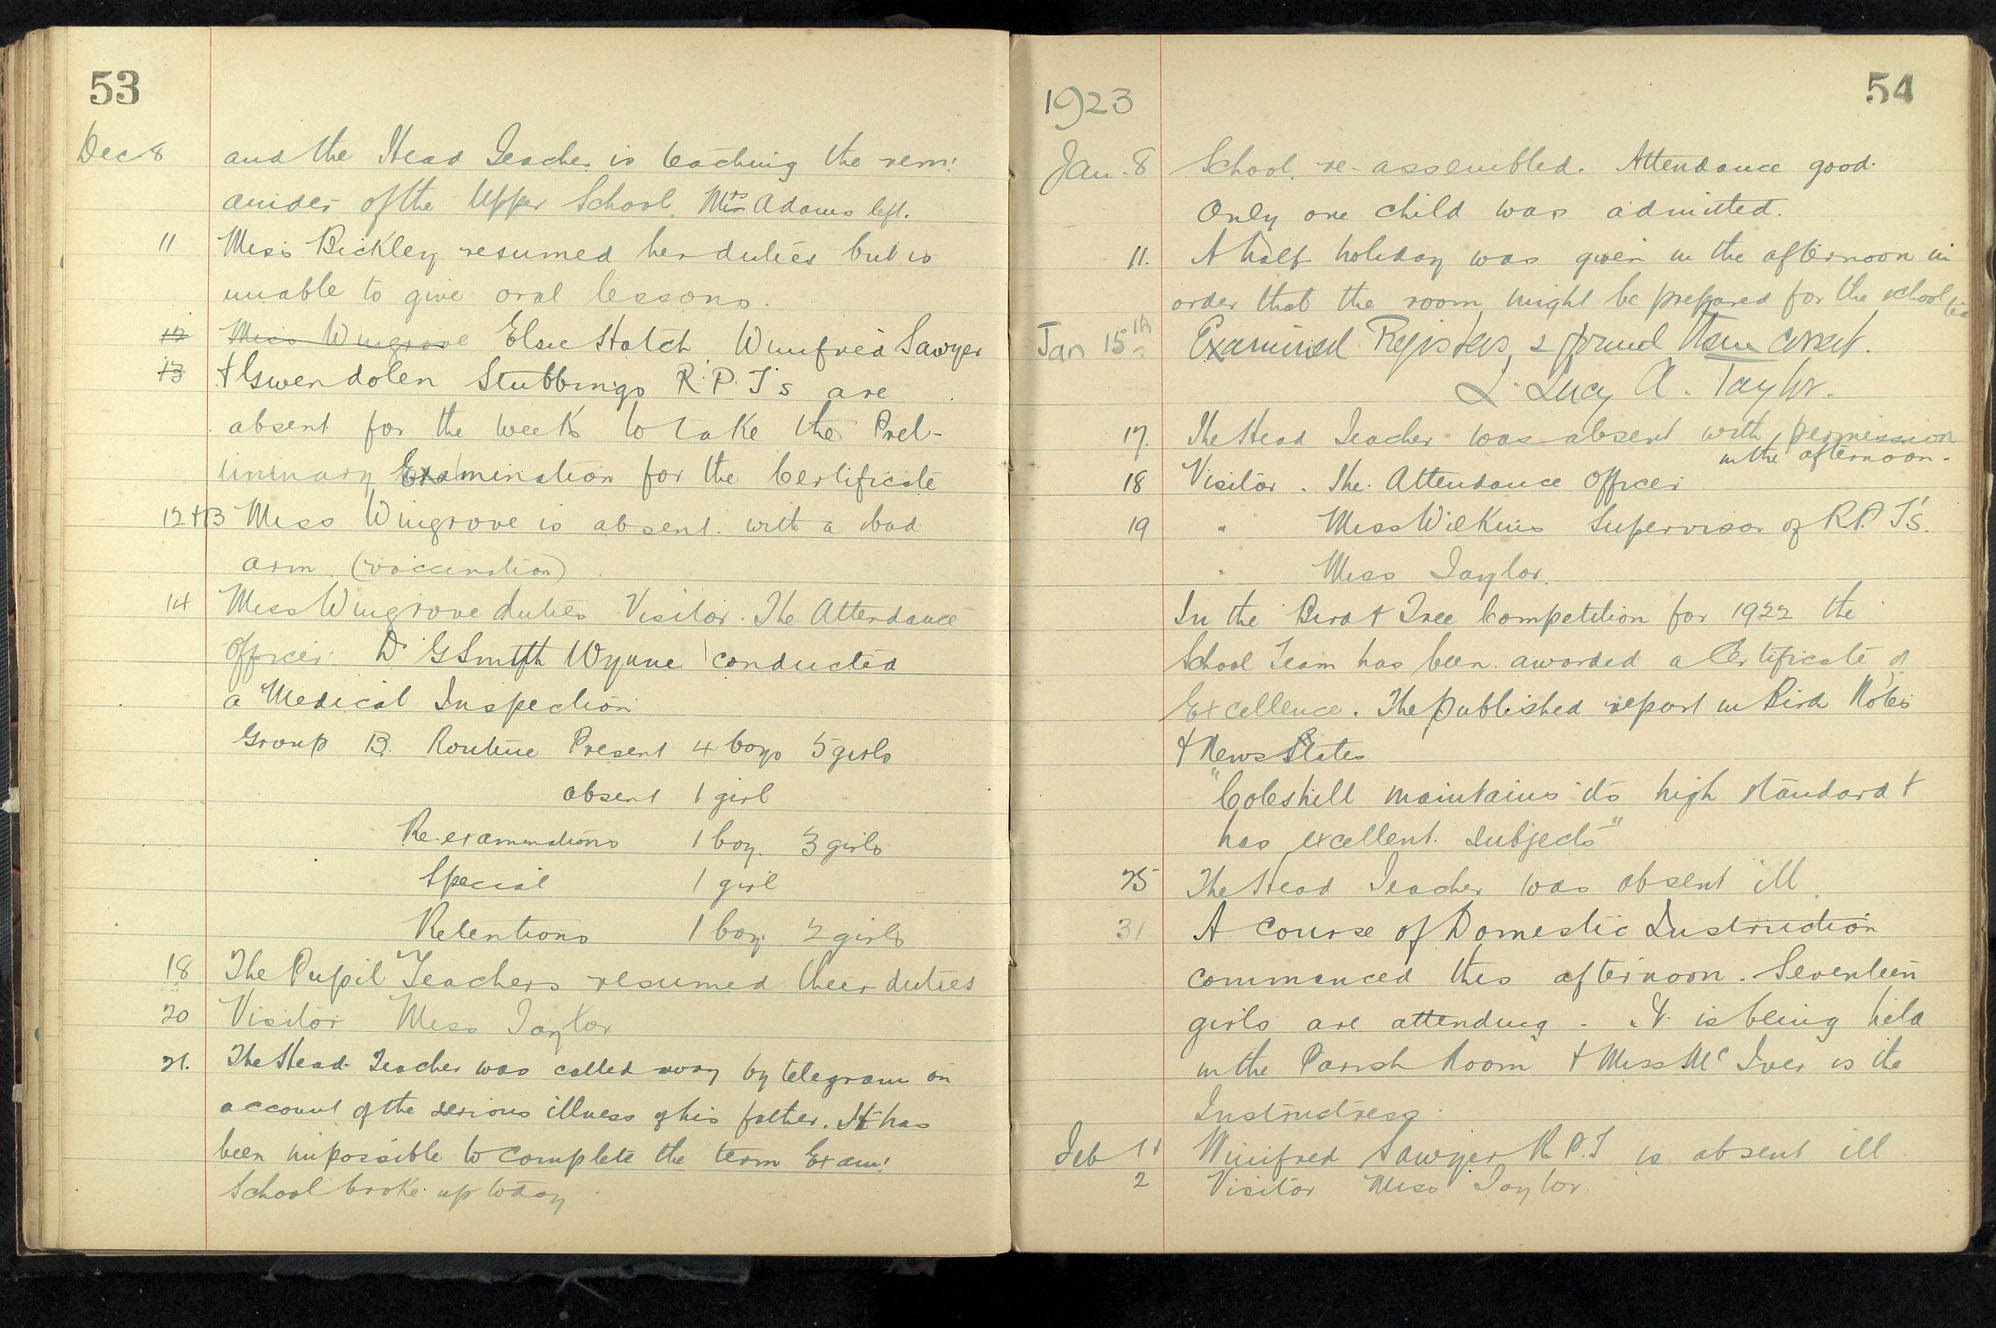 53
Dec 8 and the Head Teacher is teaching the rem:
ainder of the Upper School. Mrs Adams left.
11 Miss Bickley resumed her duties but is
unable to give oral lessons.
12 Miss Wingrove Elsie Hatch Winifred Sawyer
13 + Gwendolen Stubbings R.P.T's are
absent for the week to take the Prel-
iminary Examination for the Certificate
12+13 Miss Wingrove is absent with a bad
arm (vaccination)
14 Miss Wingrove duties Visitor. The Attendance
Officer. Dr G Smith Wynne conducted
a Medical Inspection
Group B. Routine Present 4 boys 5 girls
absent 1 girl
Re-examinations 1 boy. 3 girls
Special 1 girl
Retentions 1 boy. 2 girls
18 The Pupil Teachers resumed their duties
20 Visitor Miss Taylor
21. The Head Teacher was called away by telegram on
account of the serious illness of his father. It has
been impossible to complete the term Exam!
School broke up today
1923
54
Jan. 8 School re-assembled. Attendance good.
Only one child was admitted.
11. A half holiday was given in the afternoon in
order that the room might be prepared for the school tea
Jan 15th Examined Registers & found them correct.
L. Lucy A. Taylor.
17. The Head Teacher was absent with permission
in the afternoon.
18 Visitor. The Attendance Officer
19 " Miss Wilkins Supervisor of R.P.T's.
" Miss Taylor.
In the Bird + Tree Competition for 1922 the
School Team has been awarded a Certificate of
Excellence. The published report in Bird Notes
+ News States
"Coleshill maintains its high standard +
has excellent subjects"
25 The Head Teacher was absent ill.
31 A course of Domestic Instruction
commenced this afternoon. Seventeen
girls are attending. It is being held
in the Parish Room + Miss McIver is the
Instructress.
Feb 1+ Winifred Sawyer R.P.T is absent ill
2 Visitor Miss Taylor.